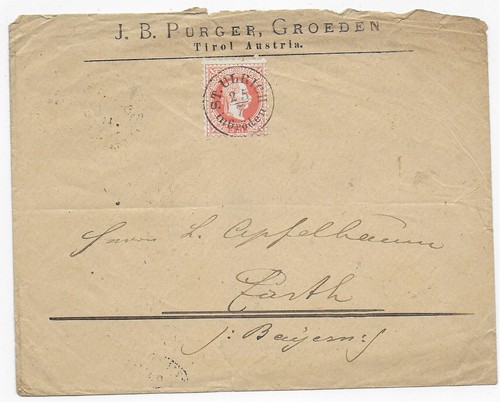 J. B. PURGER, GROEDEN
Tirol Austria.
ST. ULRICH
25
in Gröden
Herrn L. Apfelbaum
Fürth
i. Bayern